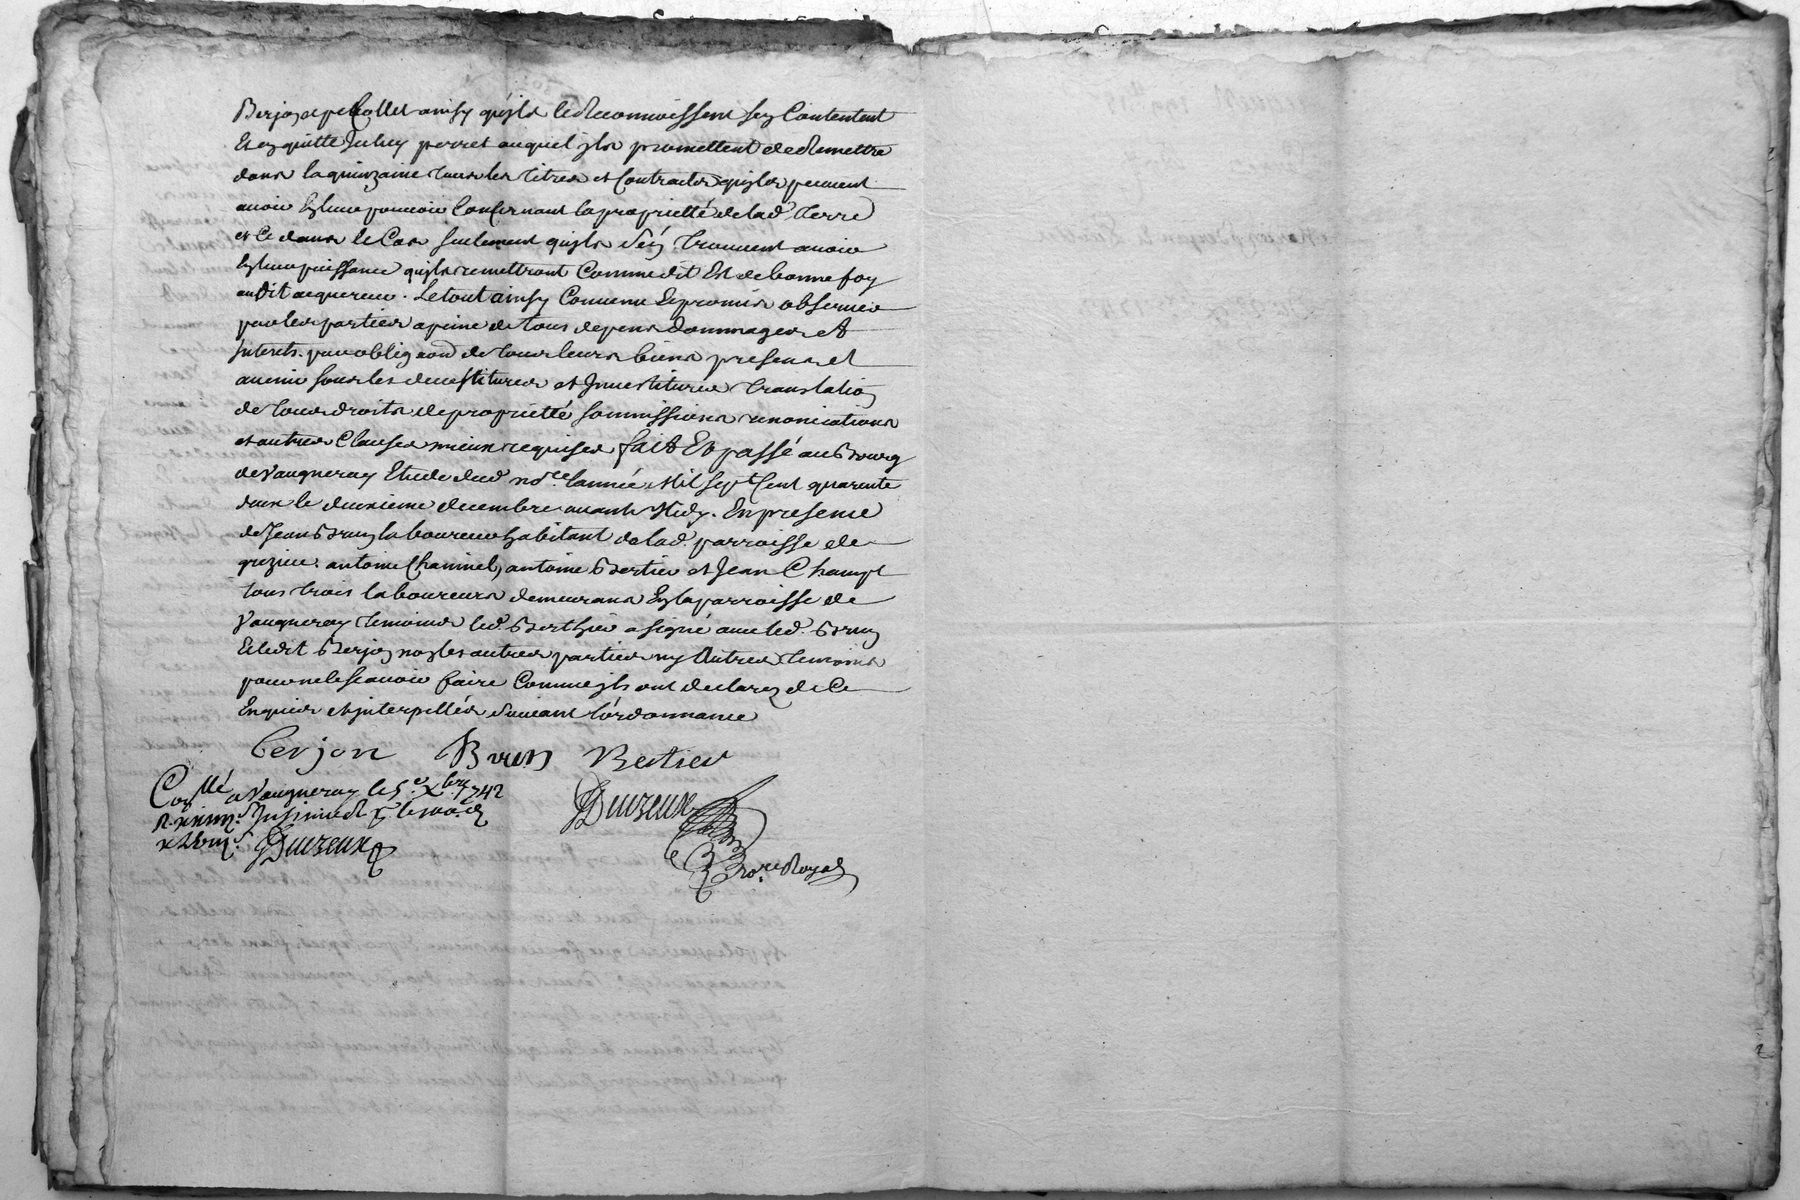 Berjon et pe Collet ainsy qu'jls le Reconnoissent s'en Contentent
Et en quitte Jceluy perret auquel jls promettent de Remettre
dans la quinzaine tous les titres et Contracts qu'jls peuvent
avoir En leur pouvoir Concernant la proprietté de lad. terre
et Ce dans le Cas seulement qu'jls s'en trouvent avoir
En leur puissance qu'jls remettront Comme dit Est de bonne foy
audit acquereur. Le tout ainsy Convenu Et promis observer
par les parties a peine de tous depens dommages et
Jnterets. par obligaon de tous leurs biens presens et
avenir sous les devestitures et Jnvestitures translation
de tous droits de proprietté sommissions renonciations
et autres Clauses mieux requises fait Et passé au Bourg
de Vaugneray Etude dud. nore. l'année Mil sept Cent quarente
deux le deuxieme decembre avant Midy. En presence
de Jean Brun laboureur habitant de lad. parroisse de
grezieu. antoine Chaninel, antoine Bertier et Jean Champt
tous trois laboureurs demeurans En la parroisse de
Vaugneray temoins led. Berthier a signé avec led. Brun
Et ledit Berjon non les autres parties ny Autres temoins
pour ne le sçavoir faire Comme jls ont declarez de Ce
Enquis et jnterpellés suivant l'ordonnance
berjon Brun Bertier
Conllé a Vaugneray le 5e. Xbre 1742
Duvzeux
Duvzeux
nore. Royal